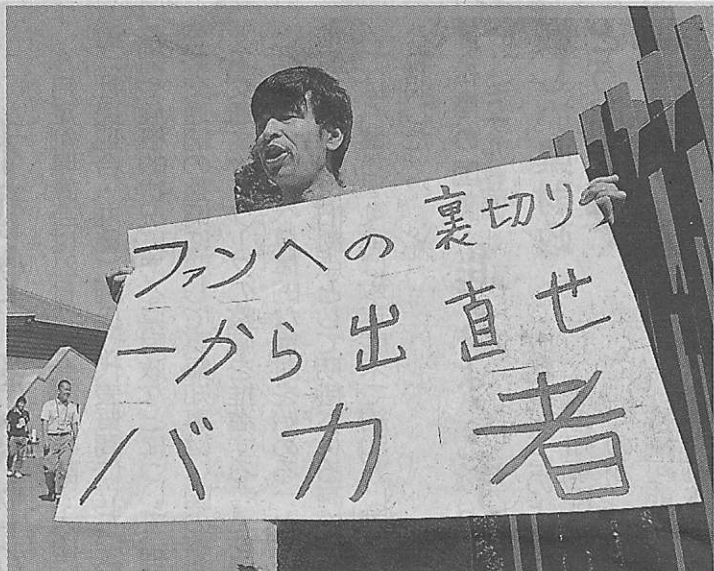 ファンへの裏切り
一から出直せ
バカ者